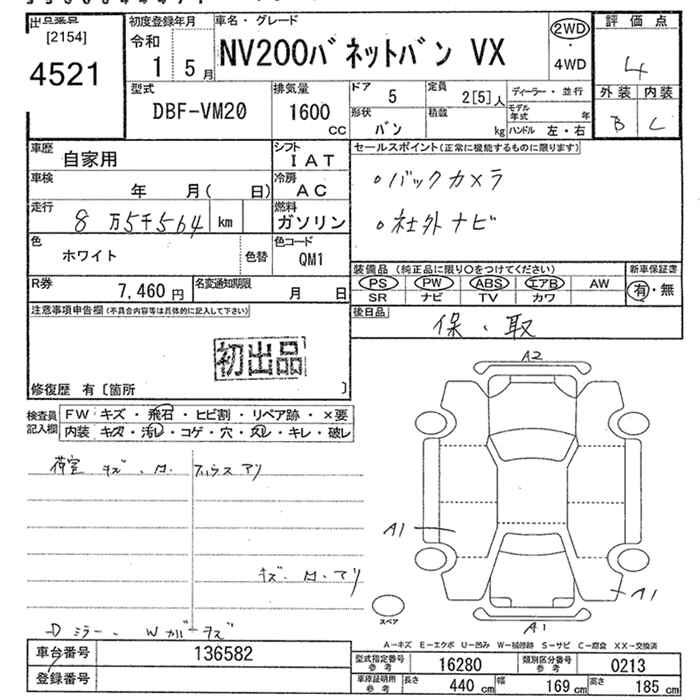 出品票
初度登録年月
車名・グレード
評価点
[2154]
4521
令和
1
5月
NV200バネットバン VX
2WD
・
4WD
4
型式
DBF-VM20
排気量
1600
cc
ドア
5
定員
2[5]人
ディーラー・並行
外装
内装
形状
バン
積載
kg
モデル年式
年
ハンドル 左・右
B
C
車歴
自家用
シフト
IAT
セールスポイント(正常に機能するものに限ります)
車検
年 月( 日)
冷房
AC
。バックカメラ
走行
8万5千564 km
燃料
ガソリン
。社外ナビ
色
ホワイト
色替
色コード
QM1
装備品 (純正品に限り○をつけてください)
新車保証書
PS PW ABS エアB AW
有・無
SR ナビ TV カワ
R券
7,460円
名変通知期限
月 日
後日品
保・取
注意事項申告欄 (不具合内容等は具体的に記入して下さい)
初出品
修復歴 有〔箇所 〕
検査員記入欄
FW キズ・飛石・ヒビ割・リペア跡・×要
内装 キズ・汚レ・コゲ・穴・スレ・キレ・破レ
A2
荷室 キズ、
アリ
A1
A1
スペア
A1
Dミラー、
キズ
A－キズ E－エクボ U－凹み W－補修跡 S－サビ C－腐食 XX－交換済
車台番号
136582
型式指定番号 参考
16280
類別区分番号 参考
0213
登録番号
車庫証明用 参考
長さ 440cm
幅 169cm
高さ 185cm